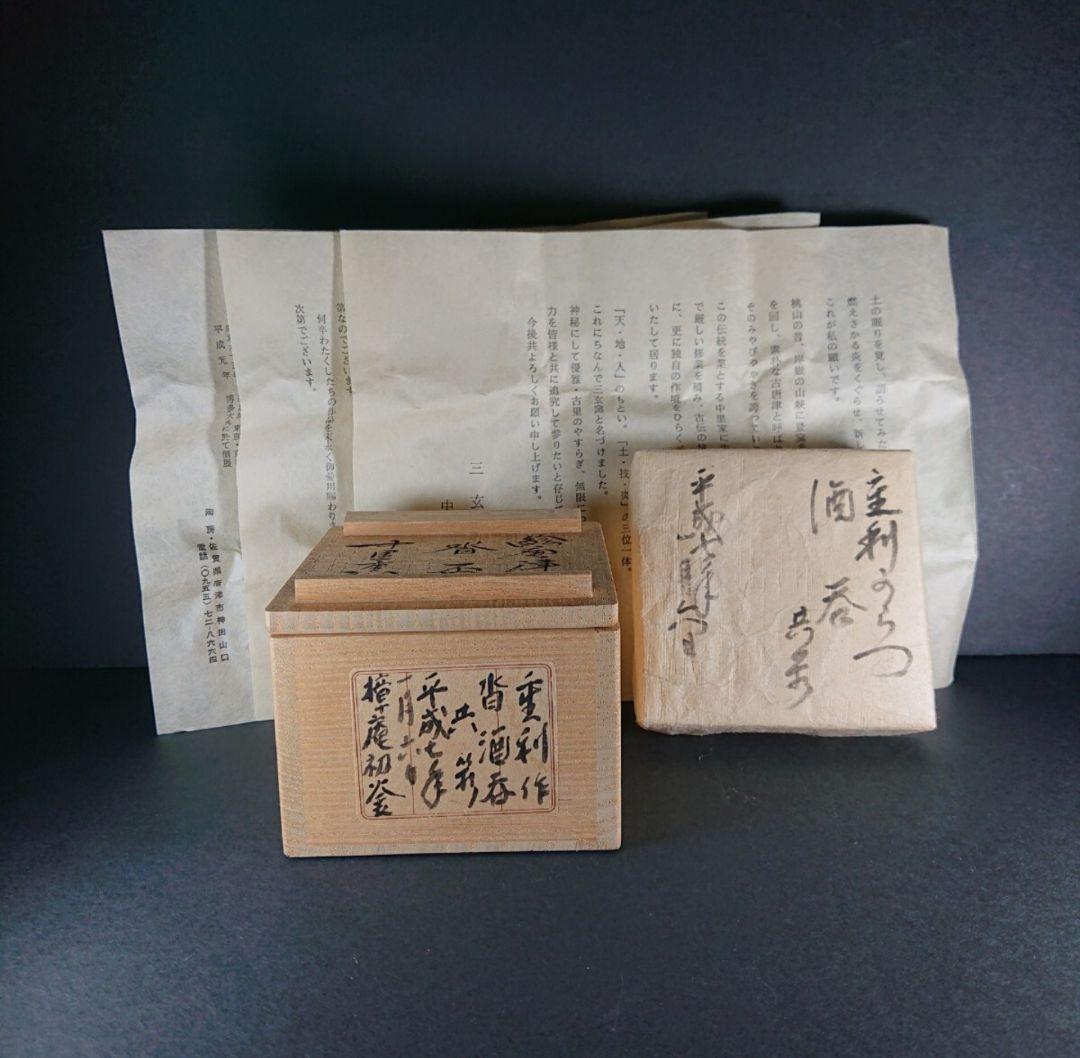 土の眠りを覚し、語らせてみた
燃えさかる炎をくぐらせ、新し
これが私の願いです。
桃山の昔、岸嶽の山峡に登窯
を回し、素朴な古唐津と呼ば
そのみやびやかさを誇ってい
この伝統を業とする中里家に生
で厳しい修業を積み、古伝の
に、更に独自の作境をひらく
いたして居ります。
「天・地・人」のもとい。「土・技・炎」の三位一体。
これにちなんで三玄窯と名づけました。
神秘にして優雅・古里のやすらぎ、無限に
力を皆様と共に追究して参りたいと存じ
今後共よろしくお願い申し上げます。
三玄
中
第なのでございます
何卒わたくしたちの作品を末永く御愛用賜わりま
次第でございます。
平成元年
博多大丸に於て個展
陶房・佐賀県唐津市神田山口
電話(〇九五五)七二・八六六四
重利からつ
酒呑
共箱
平成七年
絵唐津
沓盃
十里庵
重利作
沓酒呑
共箱
平成七年
十月六日
樟庵初釜